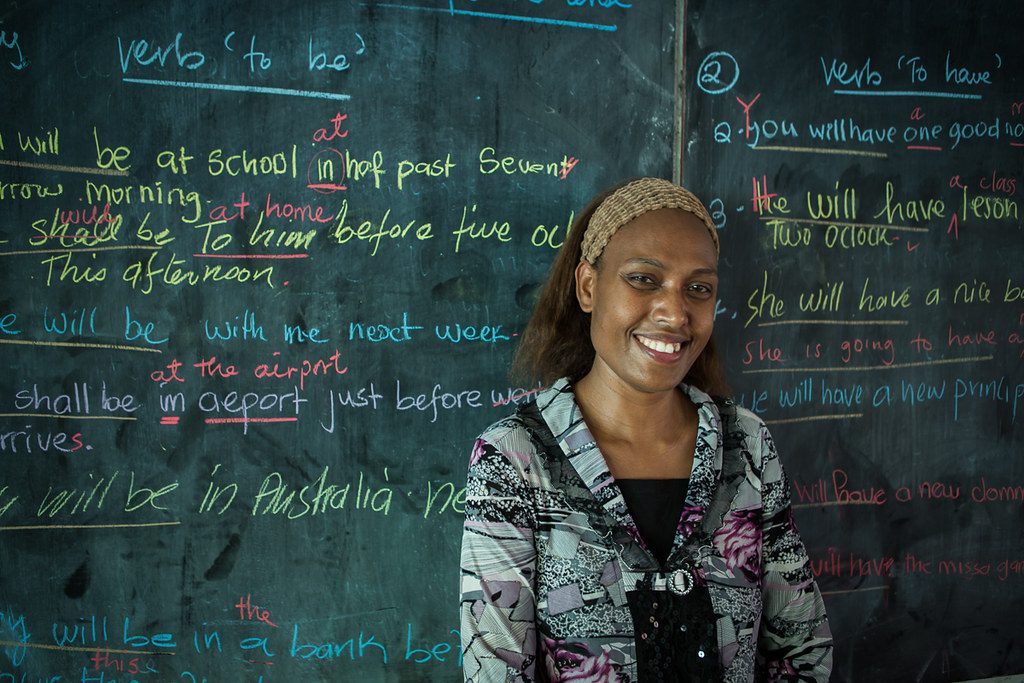 verb 'to be'
will be at school in haf past Seventy
at
morning.
shall be To him before five
will at home
This afternoon.
will be with me nesct week.
at the airport
shall be im aeport just before
rrives.
will be in Australia
the
will be in a bank
this
② verb 'To have'
Y a
2. you will have one good
a class
3. the will have leson
Two oclock.
she will have a nice
she is going to have a
will have a new
will have a new
will have the